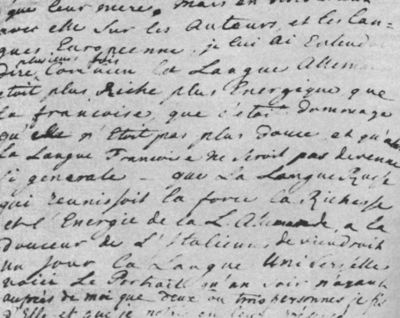 que leur mere. mais en
avec elle sur les Auteurs, et les Lan=
gues Européenne. je lui ai Entendu
dire plusieurs fois Combien la Langue Allem
etoit plus Riche plus Energeque que
la francoise, que c'étoit dommage
qu'elle n'étoit pas plus douce et qu'
la Langue Francoise ne seroit pas devenue
si generale — que La Langue Russe
qui reunissoit la force la Richesse
et l'Energie de la L. Allemande, a la
douceur de L'Italien, deviendroit
un jour la Langue Universelle
voici Le Portrait qu'un soir nayant
auprès de moi que deux ou trois personnes je fis
d'Elle et que je